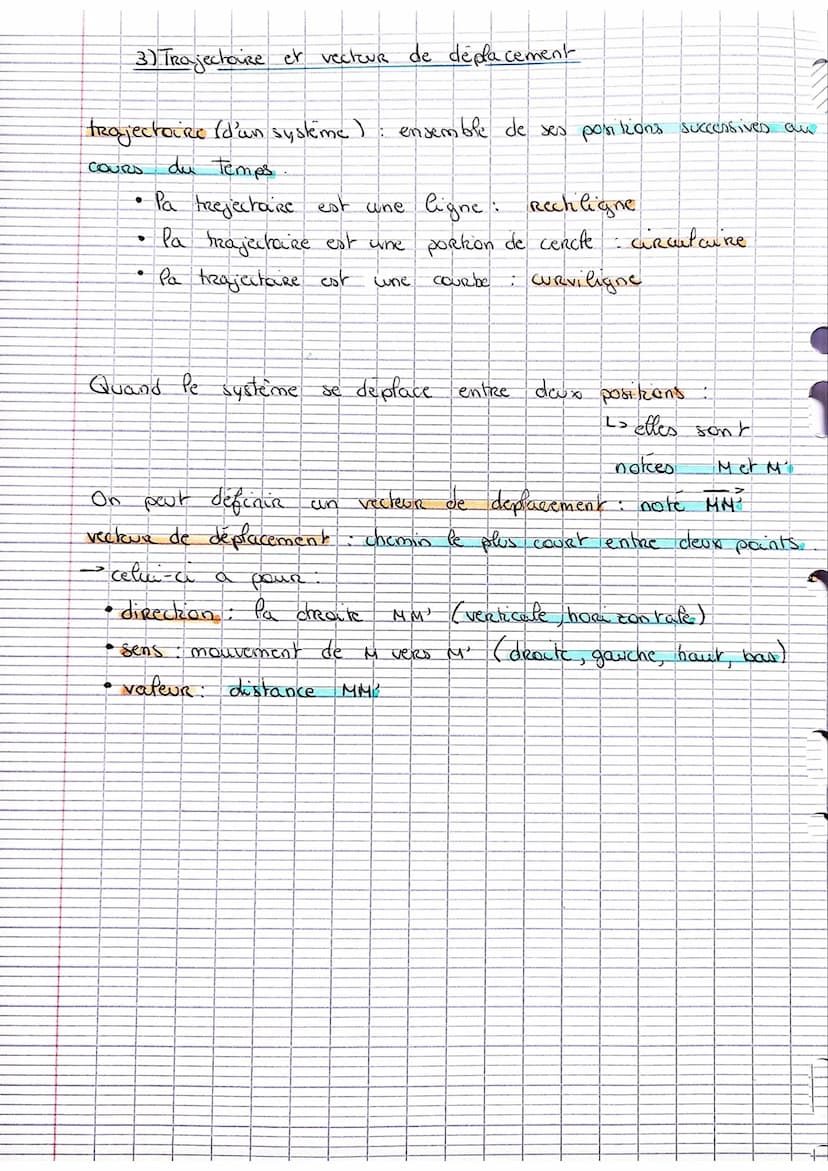 3) Trajectoire et vecteur de déplacement
trajectoire (d'un système) : ensemble de ses positions successives au
cours du temps.
• la trajectoire est une ligne : rectiligne
• la trajectoire est une portion de cercle : circulaire
• la trajectoire est une courbe : curviligne
Quand le système se déplace entre deux positions :
↳ elles sont
notées M et M'.
On peut définir un vecteur de deplacement : noté MM'
vecteur de déplacement : chemin le plus court entre deux points.
→ celui-ci a pour :
• direction : la droite MM' (verticale, horizontale)
• sens : mouvement de M vers M' (droite, gauche, haut, bas)
• valeur : distance MM'